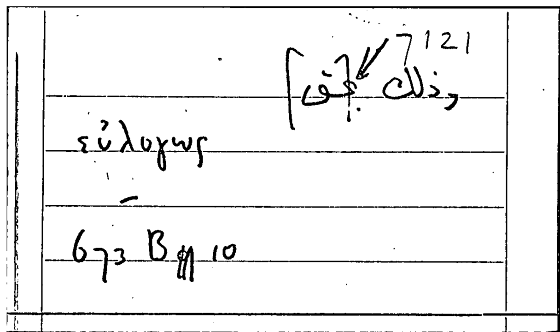 7121
وذلك
εὐλογως
–
673 B 10